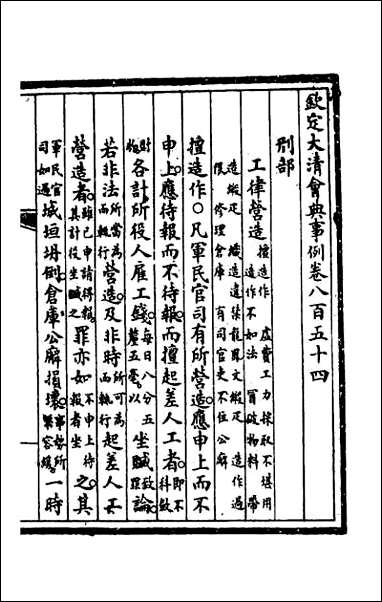 欽定大清會典事例卷八百五十四
刑部
工律營造擅造作 虛費工力採取不堪用 造作不如法 冒破物料 帶造緞疋 織造違禁龍鳳文緞疋 造作過限 修理倉庫 有司官吏不住公廨
擅造作○凡軍民官司有所營造應申上而不
申上應待報而不待報而擅起差人工者即不科斂
財物各計所役人雇工錢每日八分五釐五毫以坐贓致罪論
若非法所當為而輒行營造及非時所可為而輒行起差人工
營造者雖已申請得報其計役坐贓之罪亦如不申上待報者坐之其
軍民官司如遇城垣坍倒倉庫公廨損壞事勢所繫容緩一時